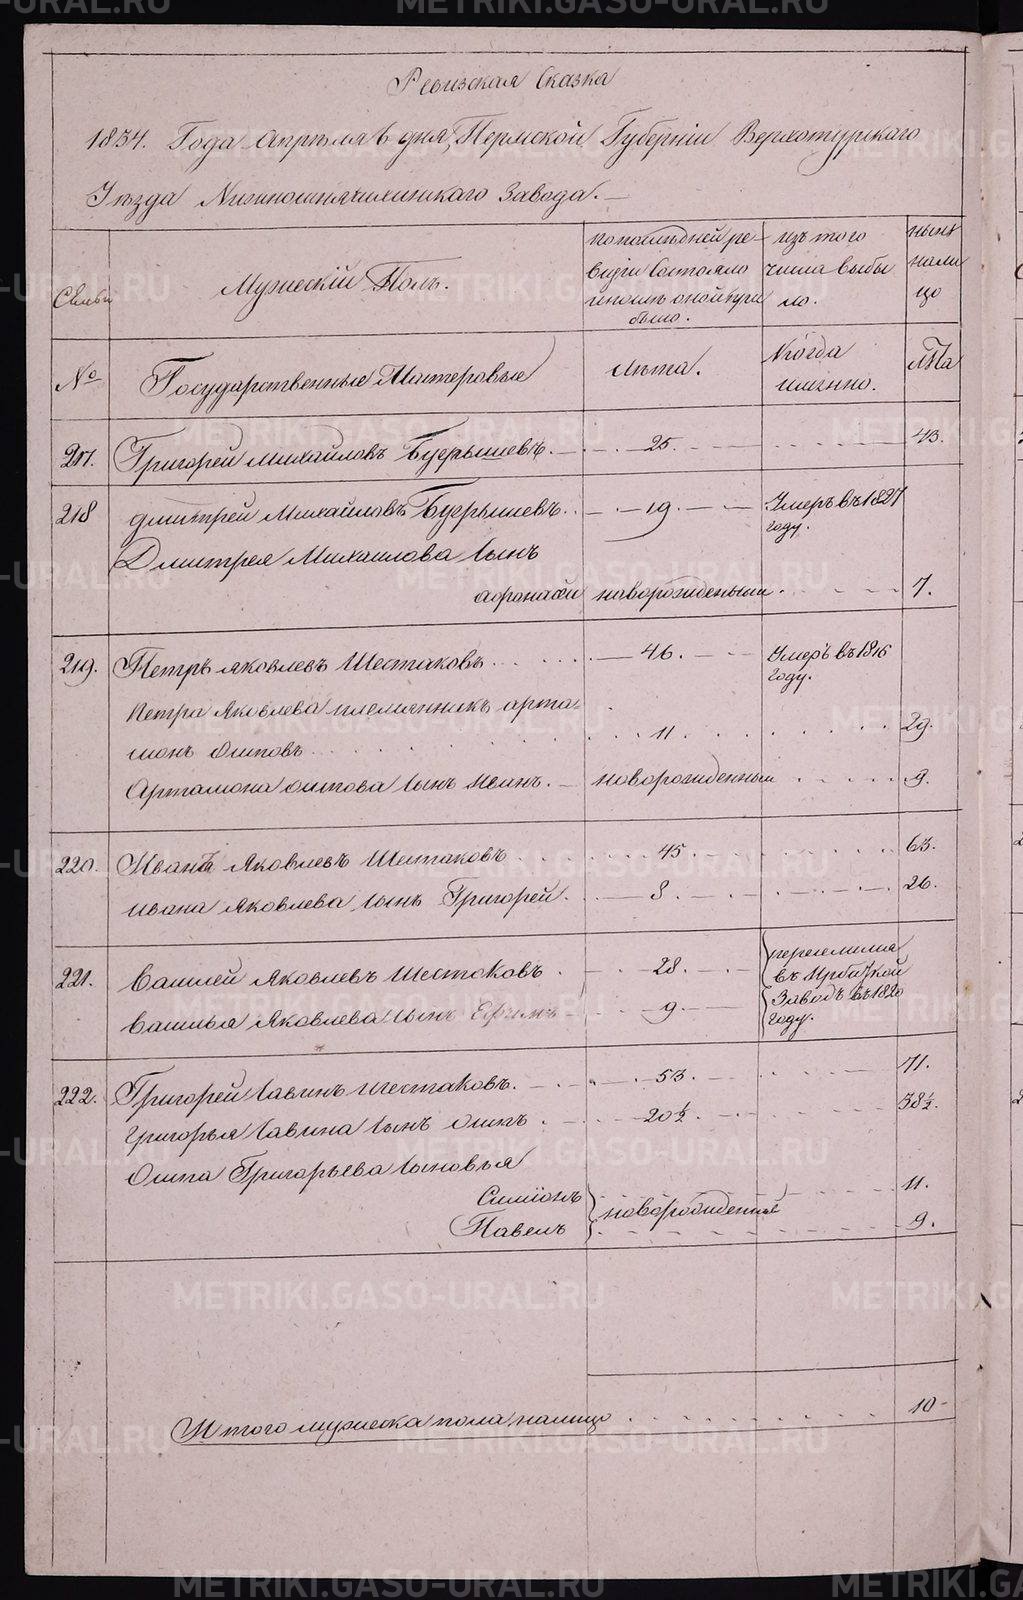 Ревизская Сказка
1834. Года Апреля 6 дня, Пермской Губернiи Верхотурскаго
Уѣзда Нижносинячихинскаго Завода.
Семьи
Мужескiй Полъ.
По последней ре-
визiи Состояло
и после оной
было.
изъ того
числа выбы
ло.
нынѣ
нали
цо
№
Государственные Мастеровые
Лѣта.
Когда
имянно.
лѣта
217. Григорей Михайловъ Бугрышевъ. 25. 43.
218 Дмитрей Михайловъ Бугрышевъ. 19. Умеръ въ 1827
году.
Дмитрея Михаилова сынъ
афонасей новорожденный 7.
219. Петръ Яковлевъ Шестаковъ 46. Умеръ въ 1816
году.
Петра Яковлева племянникъ арта-
монъ Осиповъ 11 29.
Артамона осипова сынъ Иванъ. новорожденный 9.
220. Иванъ Яковлевъ Шестаковъ 45. 63.
Ивана Яковлева сынъ Григорей. 8. 26.
221. Василей Яковлевъ Шестаковъ. 28. переселился
въ Ирбитской
Василья Яковлева сынъ Ефимъ 9. Заводъ въ 1820
году.
222. Григорей Савинъ Шестаковъ. 53. 71.
Григорья Савина сынъ Осипъ. 20½. 38½.
Осипа Григорьева сыновья
Симионъ 11.
новорожденные
Павелъ 9.
Итого мужеска пола налицо 10
METRIKI.GASO-URAL.RU